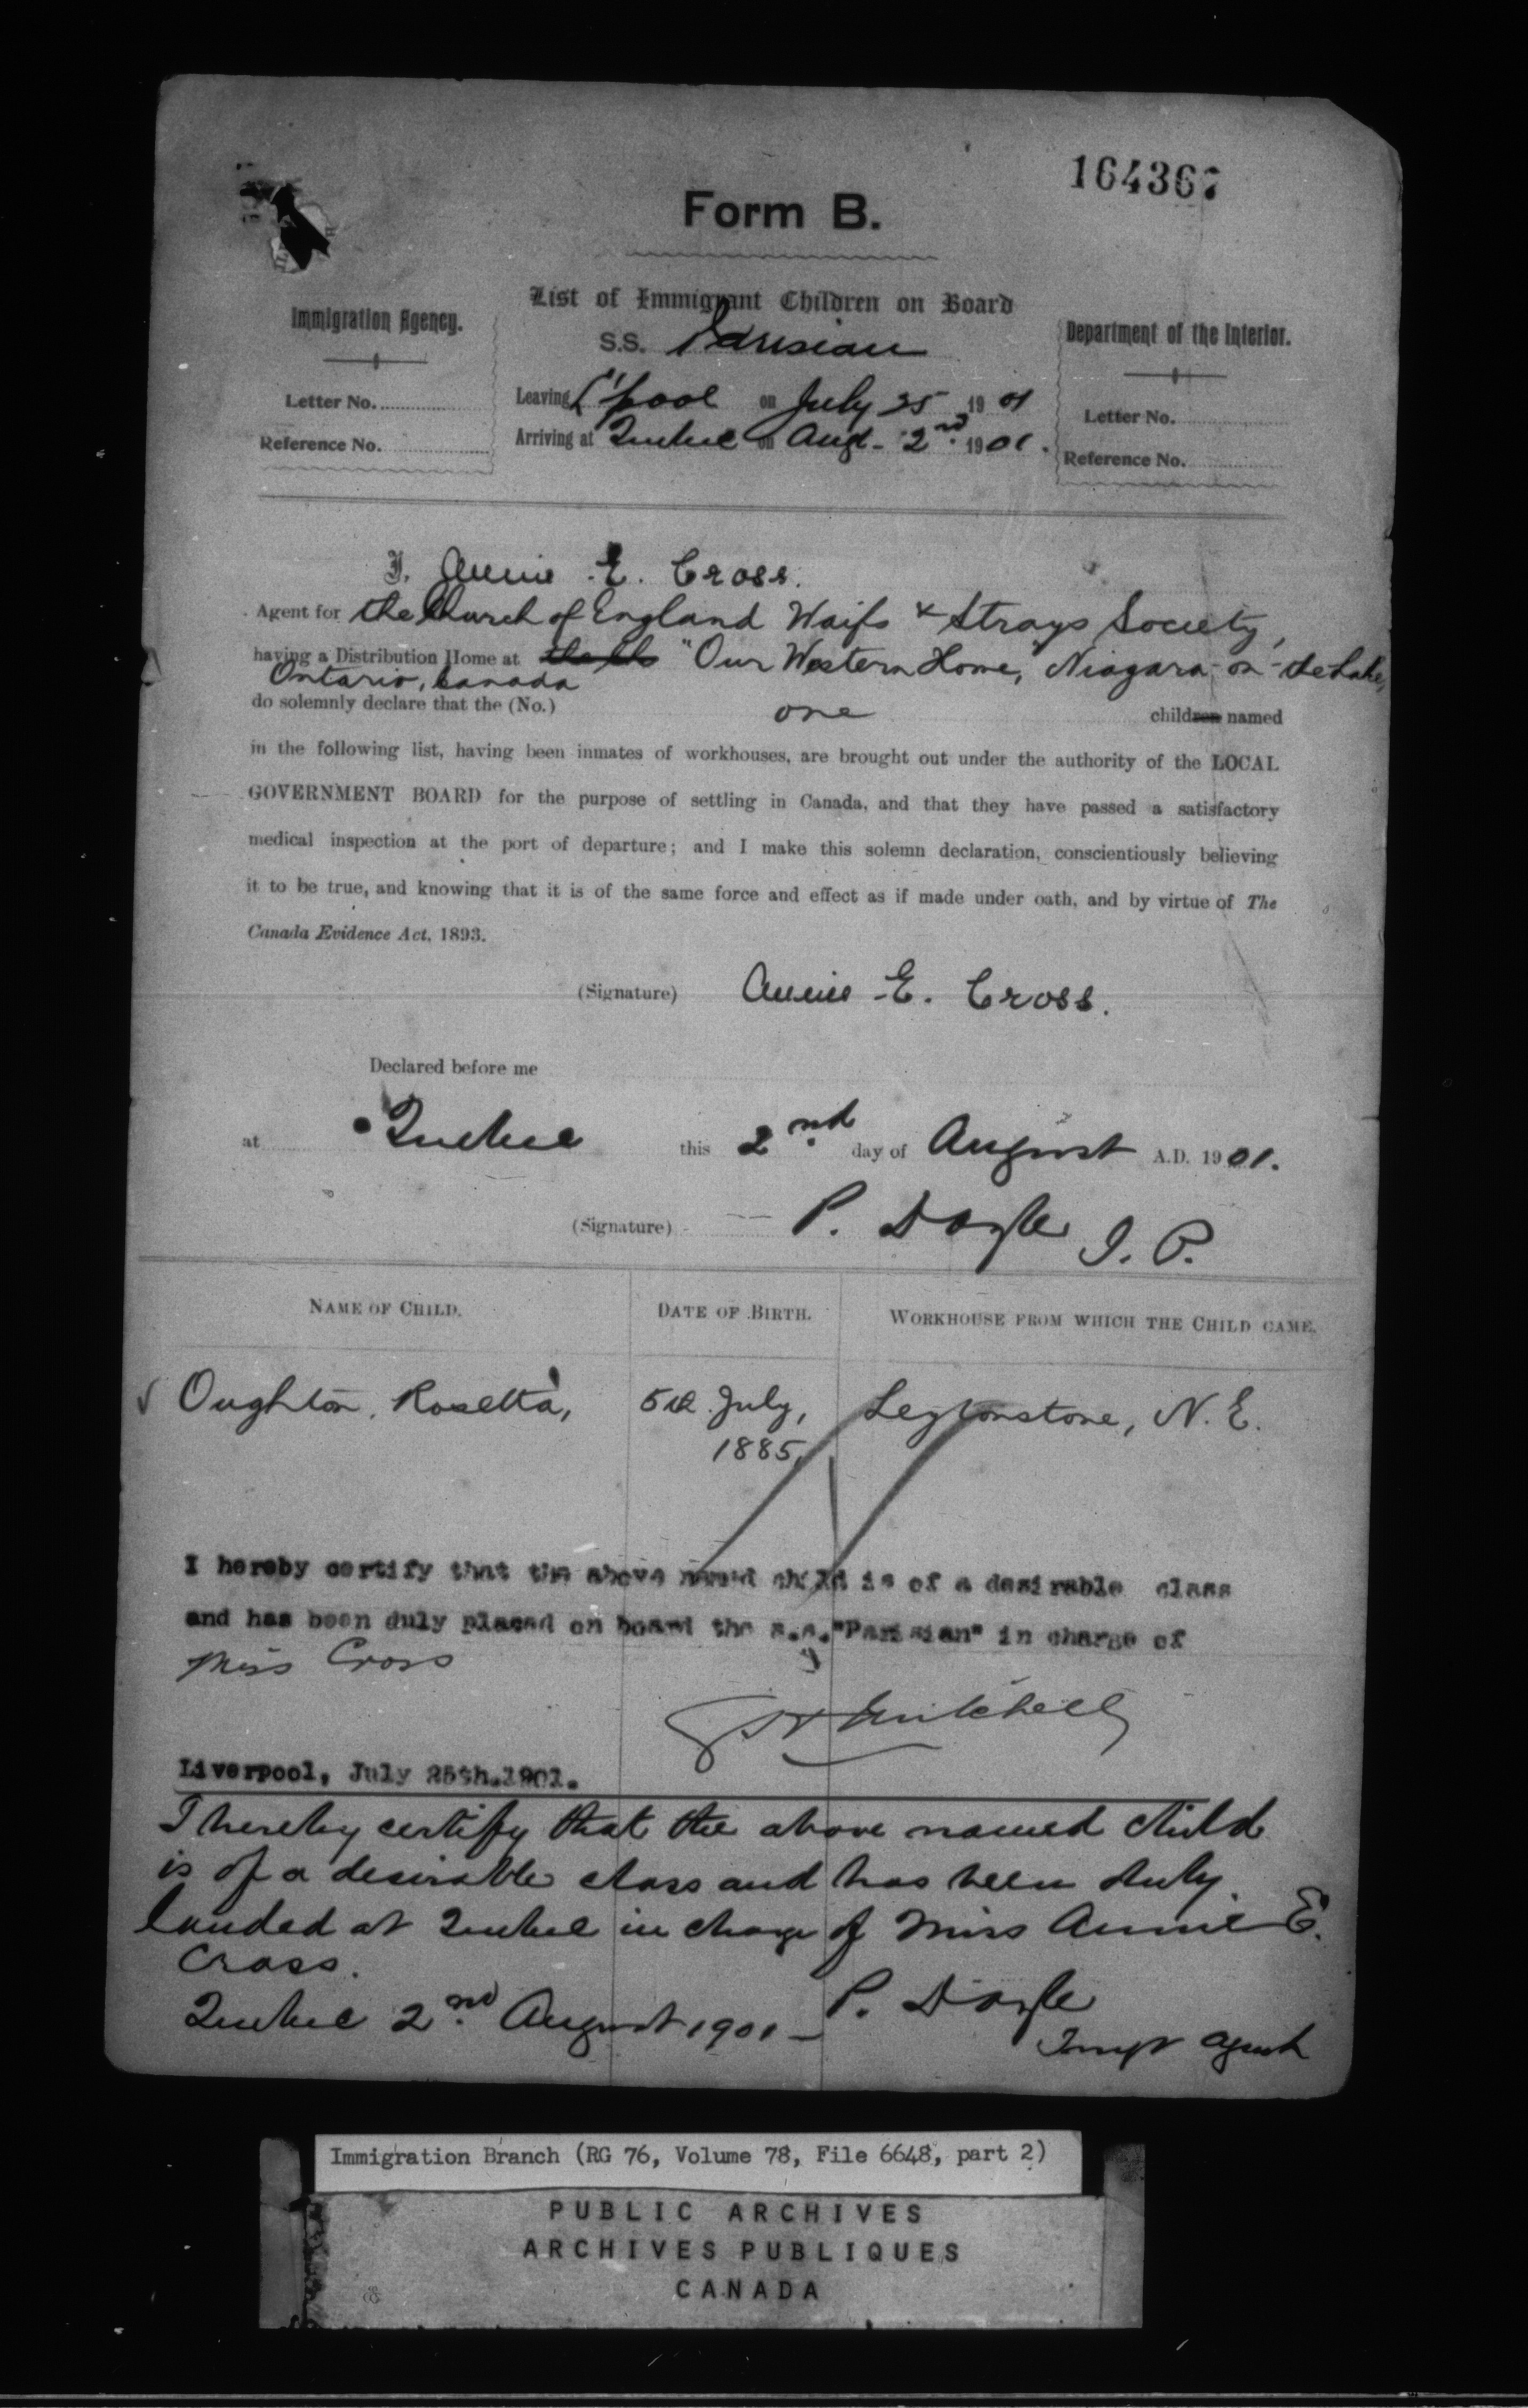 164367
Form B.
List of Immigrant Children on Board
S.S. Parisian
Immigration Agency.
Letter No.
Reference No.
Leaving L'pool on July 25 1901
Arriving at Quebec on Augt. 2nd 1901.
Department of the Interior.
Letter No.
Reference No.
I, Annie E. Cross.
Agent for the Church of England Waifs & Strays Society,
having a Distribution Home at "Our Western Home," Niagara-on-the-Lake,
Ontario, Canada
do solemnly declare that the (No.) one children named
in the following list, having been inmates of workhouses, are brought out under the authority of the LOCAL
GOVERNMENT BOARD for the purpose of settling in Canada, and that they have passed a satisfactory
medical inspection at the port of departure; and I make this solemn declaration, conscientiously believing
it to be true, and knowing that it is of the same force and effect as if made under oath, and by virtue of The
Canada Evidence Act, 1893.
(Signature) Annie E. Cross.
Declared before me
at Quebec this 2nd day of August A.D. 1901.
(Signature) P. Doyle J. P.
NAME OF CHILD. DATE OF BIRTH. WORKHOUSE FROM WHICH THE CHILD CAME.
Oughton, Rosetta, 5th July, Leytonstone, N. E.
1885,
I hereby certify that the above named child is of a desirable class
and has been duly placed on board the s.s. "Parisian" in charge of
Miss Cross
Mitchell
Liverpool, July 25th.1901.
I hereby certify that the above named child
is of a desirable class and has been duly
landed at Quebec in charge of Miss Annie E.
Cross.
Quebec 2nd August 1901 - P. Doyle
Immgt Agent
Immigration Branch (RG 76, Volume 78, File 6648, part 2)
PUBLIC ARCHIVES
ARCHIVES PUBLIQUES
CANADA